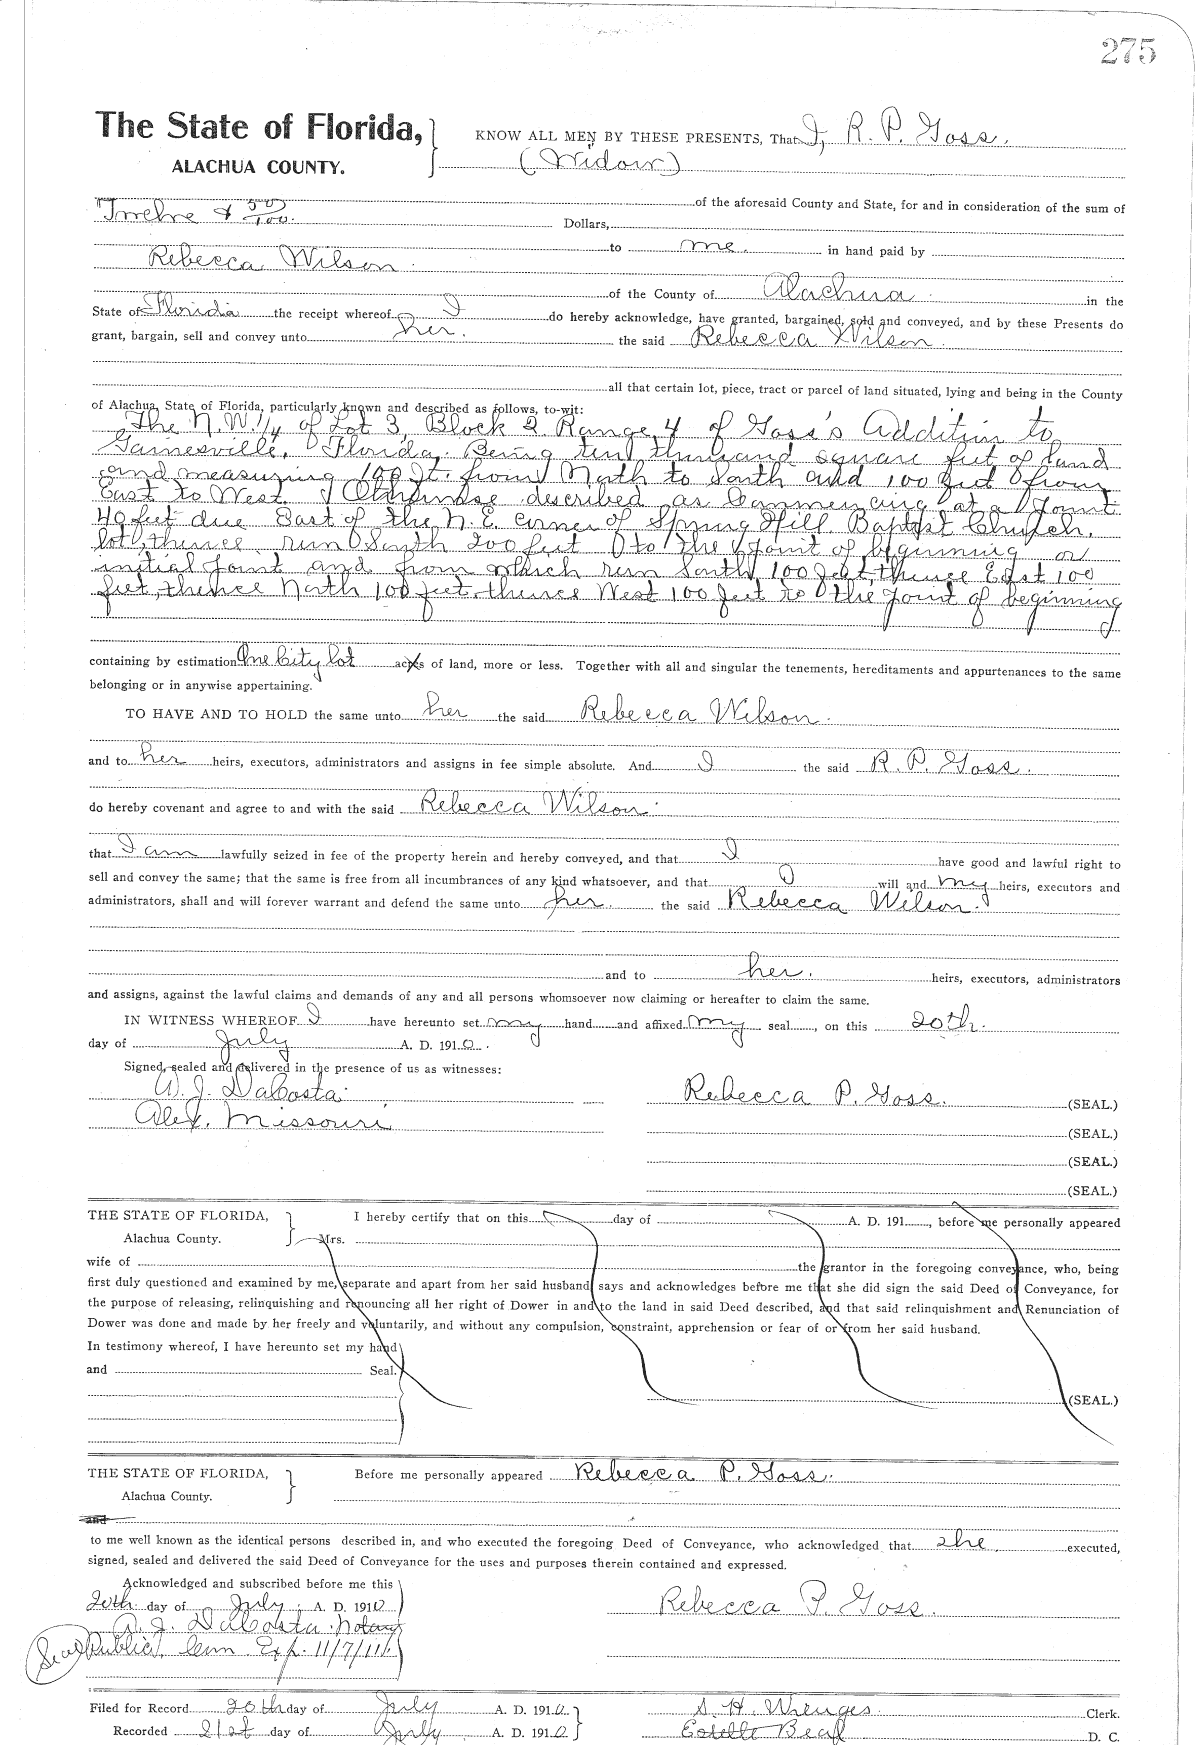 275
The State of Florida,
ALACHUA COUNTY.
KNOW ALL MEN BY THESE PRESENTS, That I, R. P. Goss.
(Widow)
of the aforesaid County and State, for and in consideration of the sum of
Twelve & 50/100. Dollars,
to me in hand paid by
Rebecca Wilson
of the County of Alachua in the
State of Florida the receipt whereof I do hereby acknowledge, have granted, bargained, sold and conveyed, and by these Presents do
grant, bargain, sell and convey unto her. the said Rebecca Wilson
all that certain lot, piece, tract or parcel of land situated, lying and being in the County
of Alachua, State of Florida, particularly known and described as follows, to-wit:
The N.W. 1/4 of Lot 3, Block 2 Range 4 of Goss's Addition to
Gainesville, Florida. Being ten thousand square feet of land
and measuring 100 ft. from North to South and 100 feet from
East to West. Otherwise described as Commencing at a Point
40 feet due East of the N. E. corner of Spring Hill Baptist Church
lot, thence run South 200 feet to the point of beginning or
initial point and from which run South 100 feet, thence East 100
feet, thence North 100 feet, thence West 100 feet to the point of beginning
containing by estimation One City lot acres of land, more or less. Together with all and singular the tenements, hereditaments and appurtenances to the same
belonging or in anywise appertaining.
TO HAVE AND TO HOLD the same unto her the said Rebecca Wilson.
and to her heirs, executors, administrators and assigns in fee simple absolute. And I the said R. P. Goss.
do hereby covenant and agree to and with the said Rebecca Wilson
that I am lawfully seized in fee of the property herein and hereby conveyed, and that I have good and lawful right to
sell and convey the same; that the same is free from all incumbrances of any kind whatsoever, and that I will and my heirs, executors and
administrators, shall and will forever warrant and defend the same unto her. the said Rebecca Wilson.
and to her. heirs, executors, administrators
and assigns, against the lawful claims and demands of any and all persons whomsoever now claiming or hereafter to claim the same.
IN WITNESS WHEREOF I have hereunto set my hand and affixed my seal, on this 20th.
day of July A. D. 1910.
Signed, sealed and delivered in the presence of us as witnesses:
A. J. DaCosta
Rebecca P. Goss. (SEAL.)
Alex. Missouri
(SEAL.)
(SEAL.)
(SEAL.)
THE STATE OF FLORIDA,
Alachua County.
I hereby certify that on this day of A. D. 191, before me personally appeared
Mrs.
wife of the grantor in the foregoing conveyance, who, being
first duly questioned and examined by me, separate and apart from her said husband says and acknowledges before me that she did sign the said Deed of Conveyance, for
the purpose of releasing, relinquishing and renouncing all her right of Dower in and to the land in said Deed described, and that said relinquishment and Renunciation of
Dower was done and made by her freely and voluntarily, and without any compulsion, constraint, apprehension or fear of or from her said husband.
In testimony whereof, I have hereunto set my hand
and Seal.
(SEAL.)
THE STATE OF FLORIDA,
Alachua County.
Before me personally appeared Rebecca P. Goss.
and
to me well known as the identical persons described in, and who executed the foregoing Deed of Conveyance, who acknowledged that she executed,
signed, sealed and delivered the said Deed of Conveyance for the uses and purposes therein contained and expressed.
Acknowledged and subscribed before me this
20th. day of July A. D. 1910
Rebecca P. Goss.
A. J. DaCosta Notary
(Seal) Public. Comm. Exp. 11/7/11.
Filed for Record 20th day of July A. D. 1910
S. H. Wienges Clerk.
Recorded 21st day of July A. D. 1910
Estelle Beal D. C.